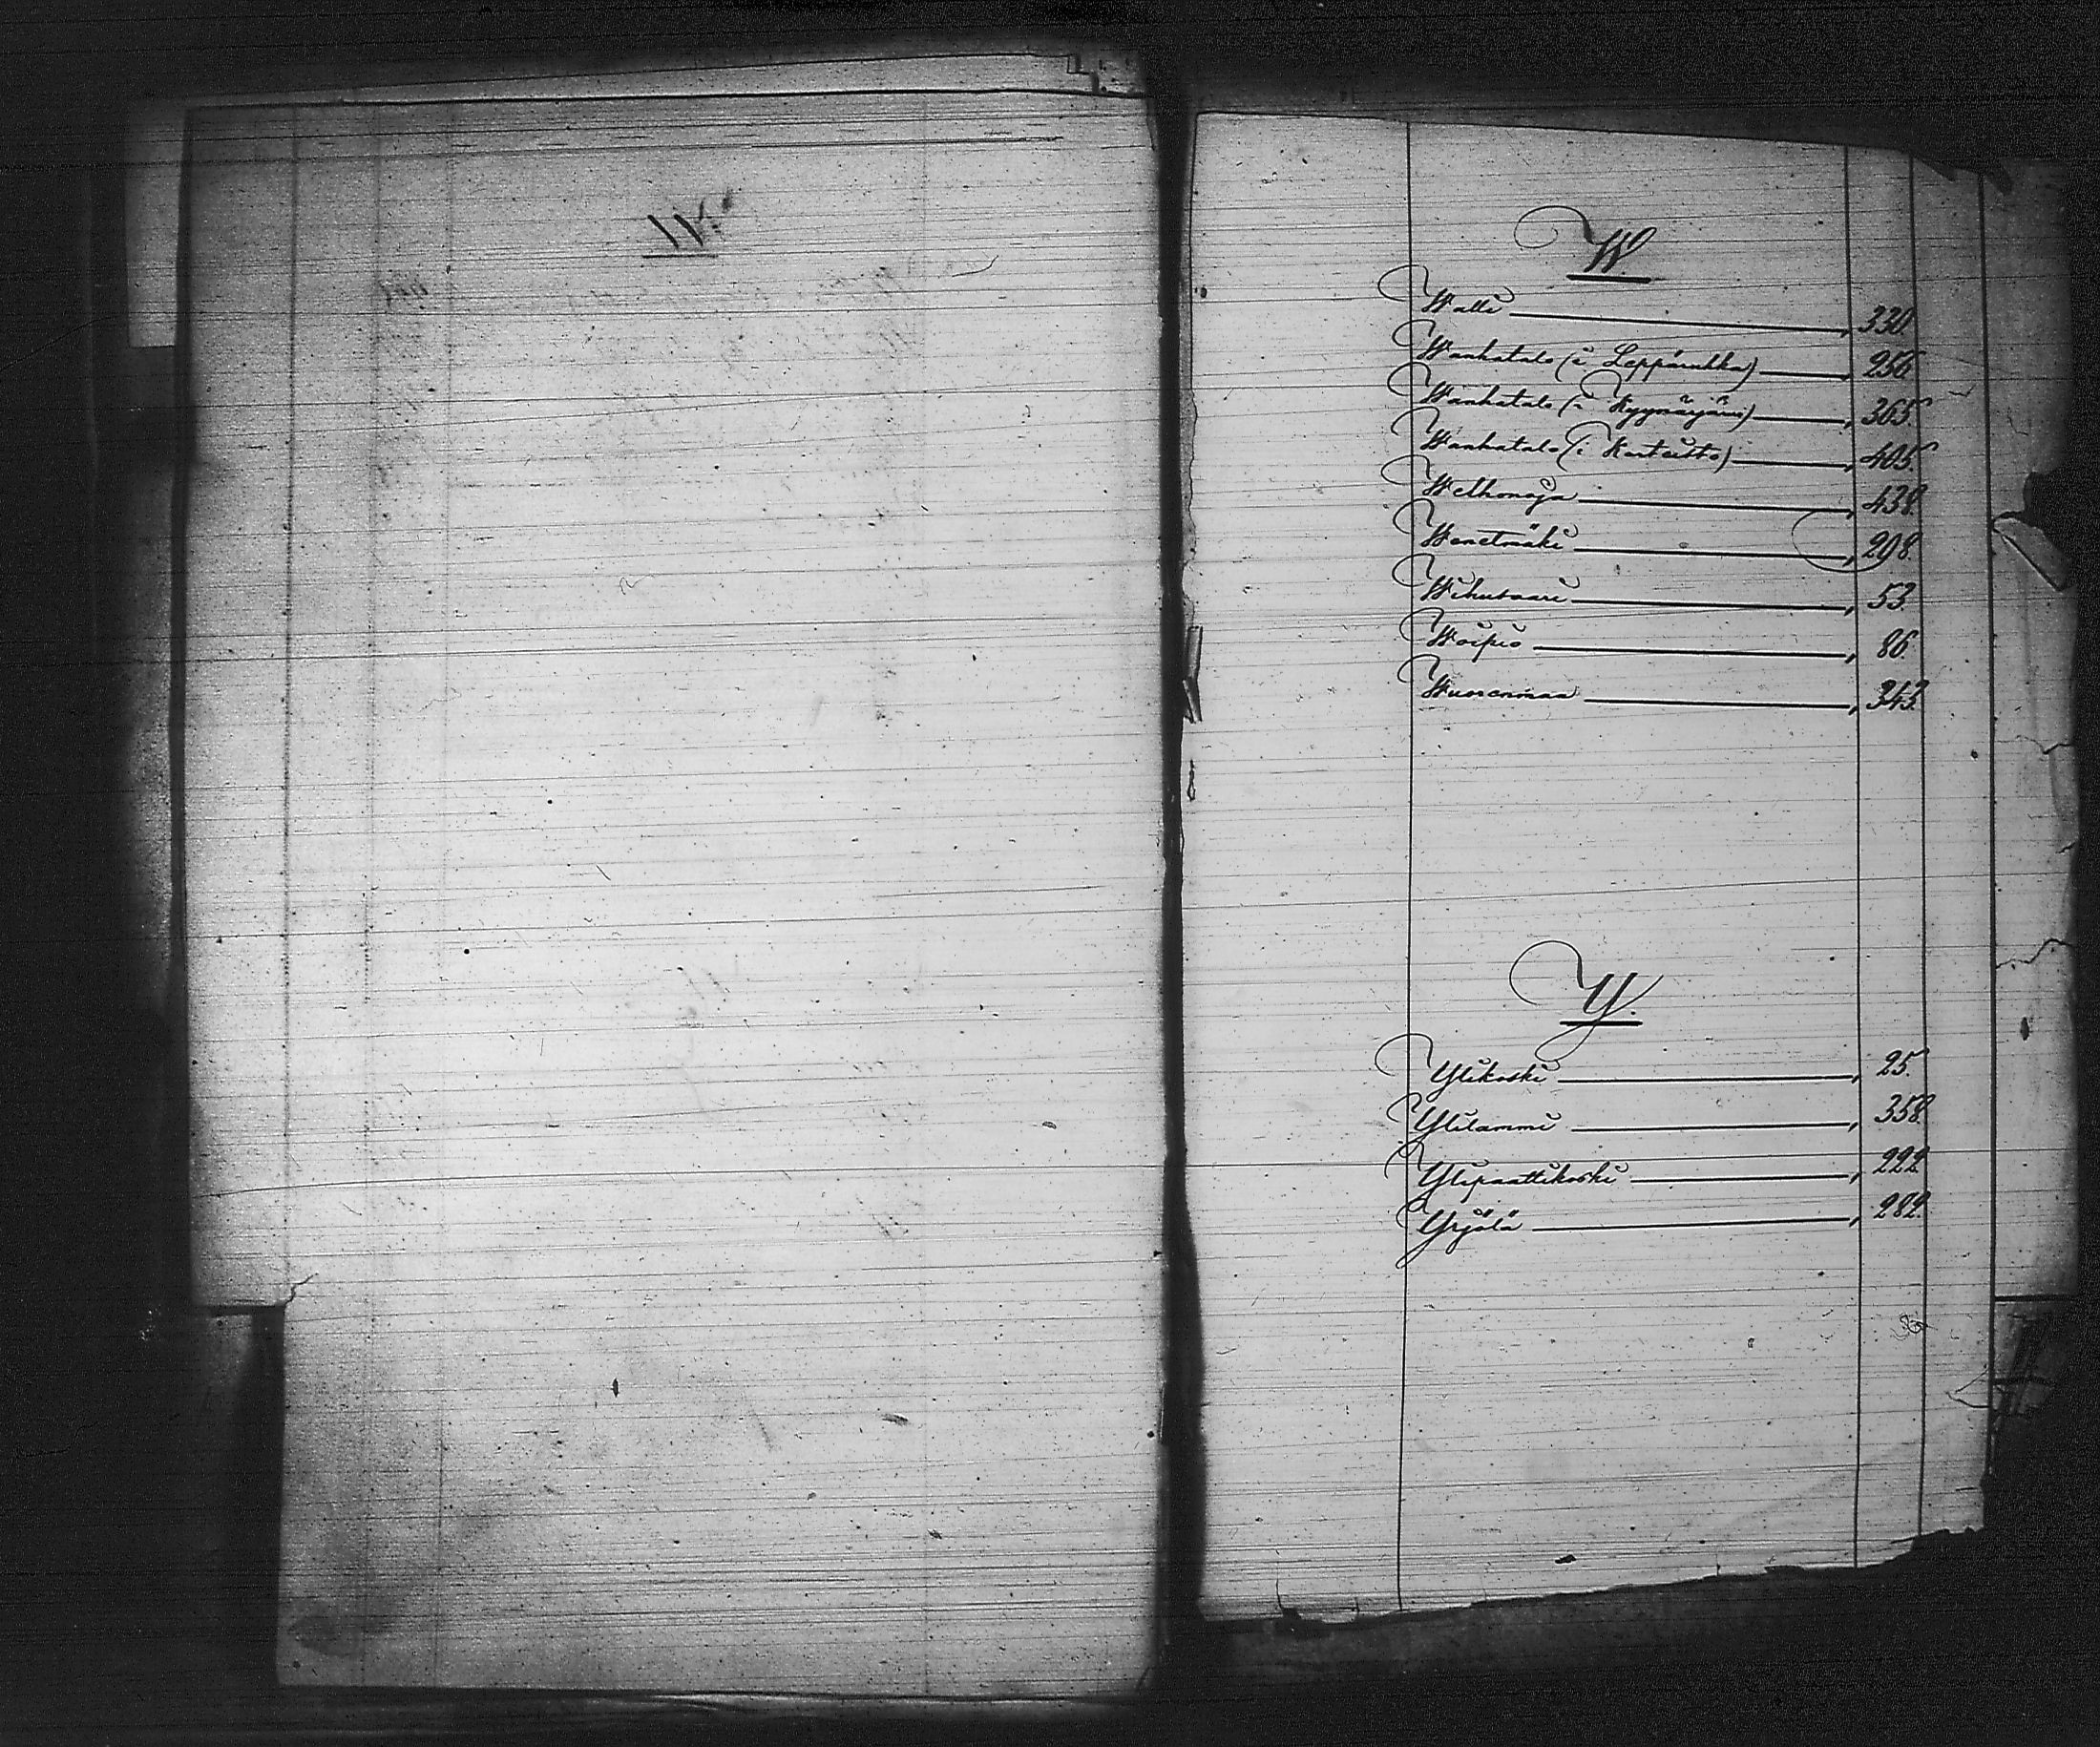 W.
Walli 330
Wanhatalo (i Leppäruhka) 256.
Wanhatalo (i Kyynäräjärvi) 365.
Wanhatalo (i Korteitto) 405.
Welhonoja 438.
Wenetmäki 298.
Wihuvaari 53.
Woipio 86.
Wuorenmaa 343.
Y.
Ylikoski 25.
Ylilammi 358.
Ylipaattikoski 222.
Yrjölä 282.